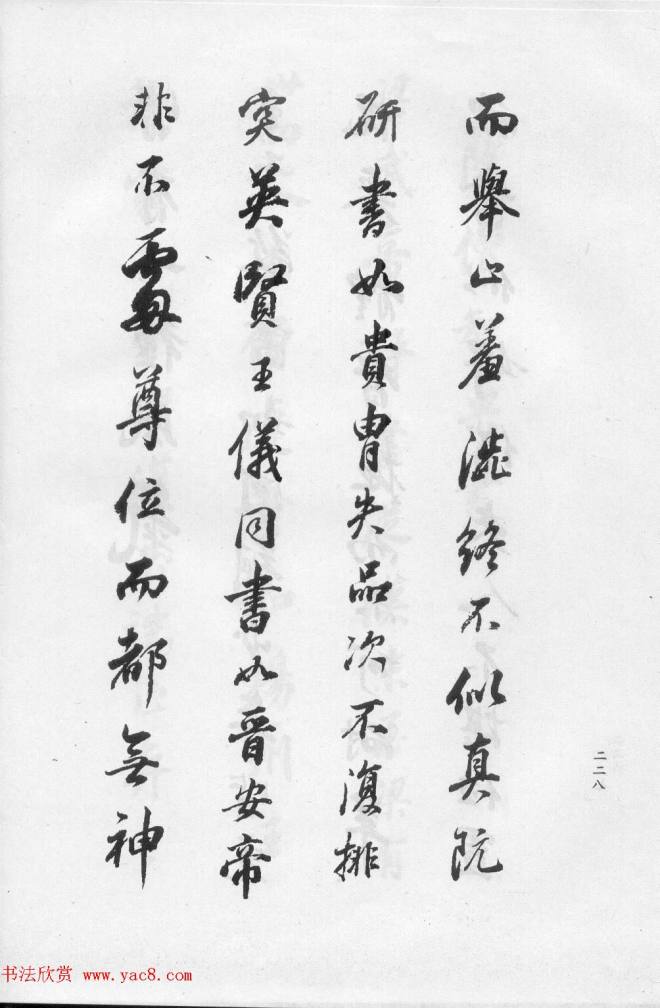 而舉止羞澀終不似真阮
研書如貴胄失品次不復排
突英賢王儀同書如晉安帝
非不處尊位而都無神
二二八
书法欣赏 www.yac8.com